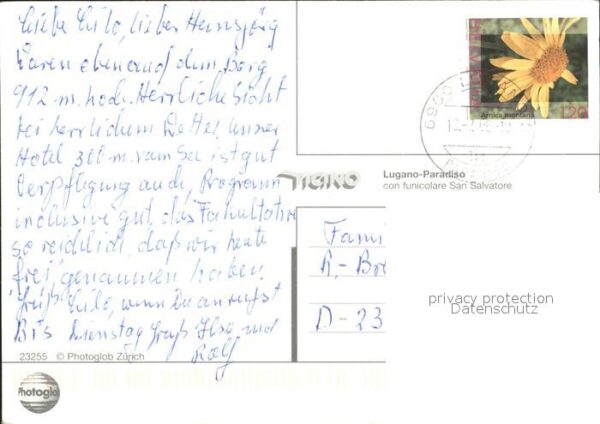 Liebe Lilo, lieber Heinsjörg
Waren eben auf dem Berg
912 m. hoch. Herrliche Sicht
bei herrlichem Wetter, unser
Hotel 300 m. vom See ist gut
Verpflegung auch, Programm
inclusive gut, das Fakultative
so reichlich, daß wir heute
"frei" genommen haben.
Lilo, wenn Du anrufst
Bis Dienstag Gruß Ilse und
Rolf
23255 © Photoglob Zürich
Photoglob
HELVETIA
Arnica montana
120
6900
TICINO
Lugano-Paradiso
con funicolare San Salvatore
Fami
R.-Bre
D-23
privacy protection
Datenschutz